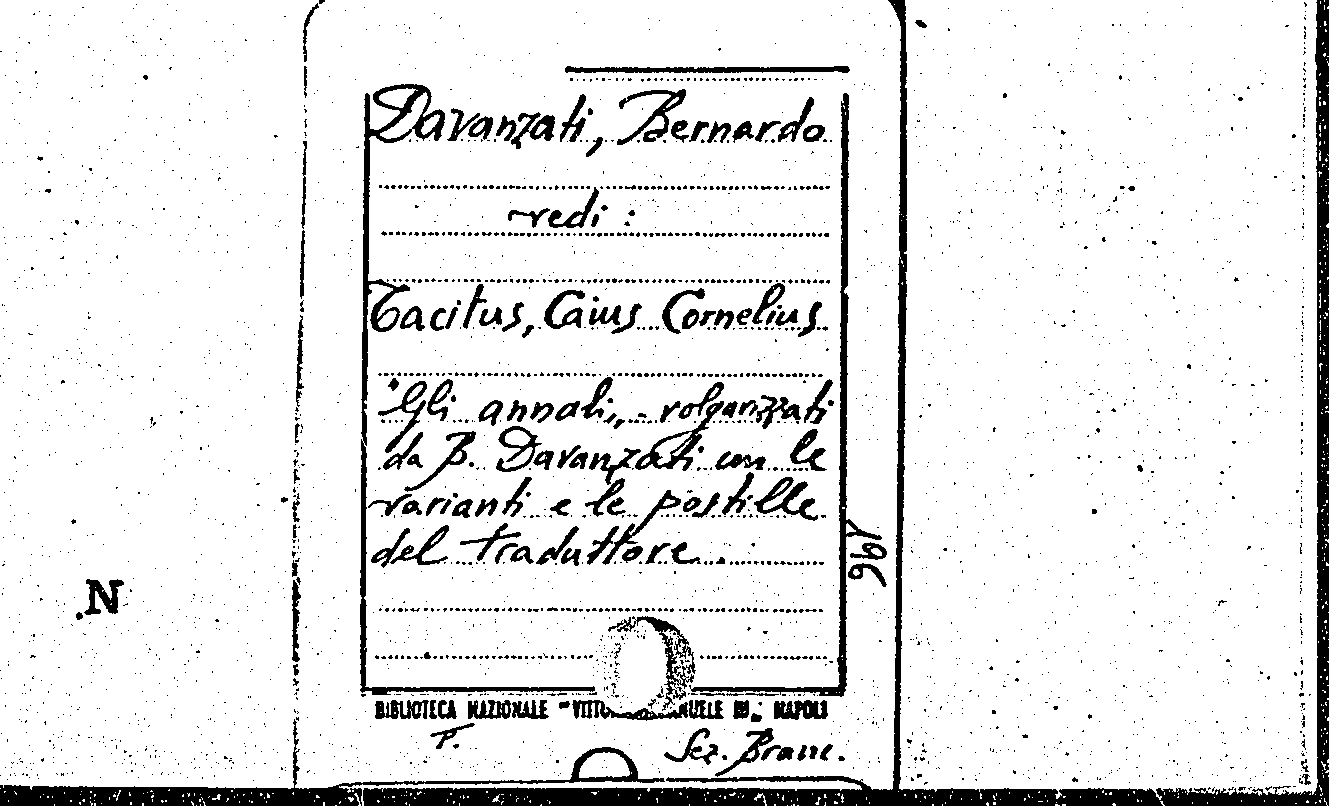 Davanzati, Bernardo
vedi :
Tacitus, Caius Cornelius
Gli annali, volganizzati
da B. Davanzati con le
varianti e le postille
del traduttore.
196
N
BIBLIOTECA NAZIONALE "VITTO NUELE III" NAPOLI
P. Sez. Branc.